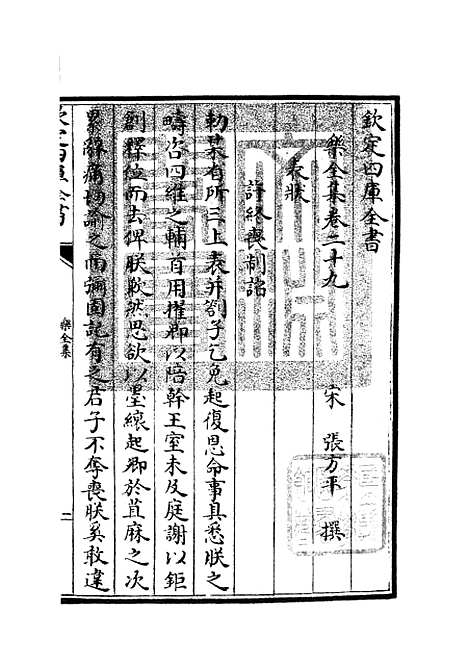 欽定四庫全書
樂全集卷二十九
宋 張方平 撰
表狀
許終喪制詔
勅某省所三上表并劄子乞免起復恩命事具悉朕之
疇咨四維之輔首用擢卿以陪幹王室未及庭謝以鉅
創釋位而去俾朕歉然思欲以墨縗起卿於苴麻之次
累辭厲切諭之而彌固記有之君子不奪喪朕奚敢違
欽定四庫全書
樂全集